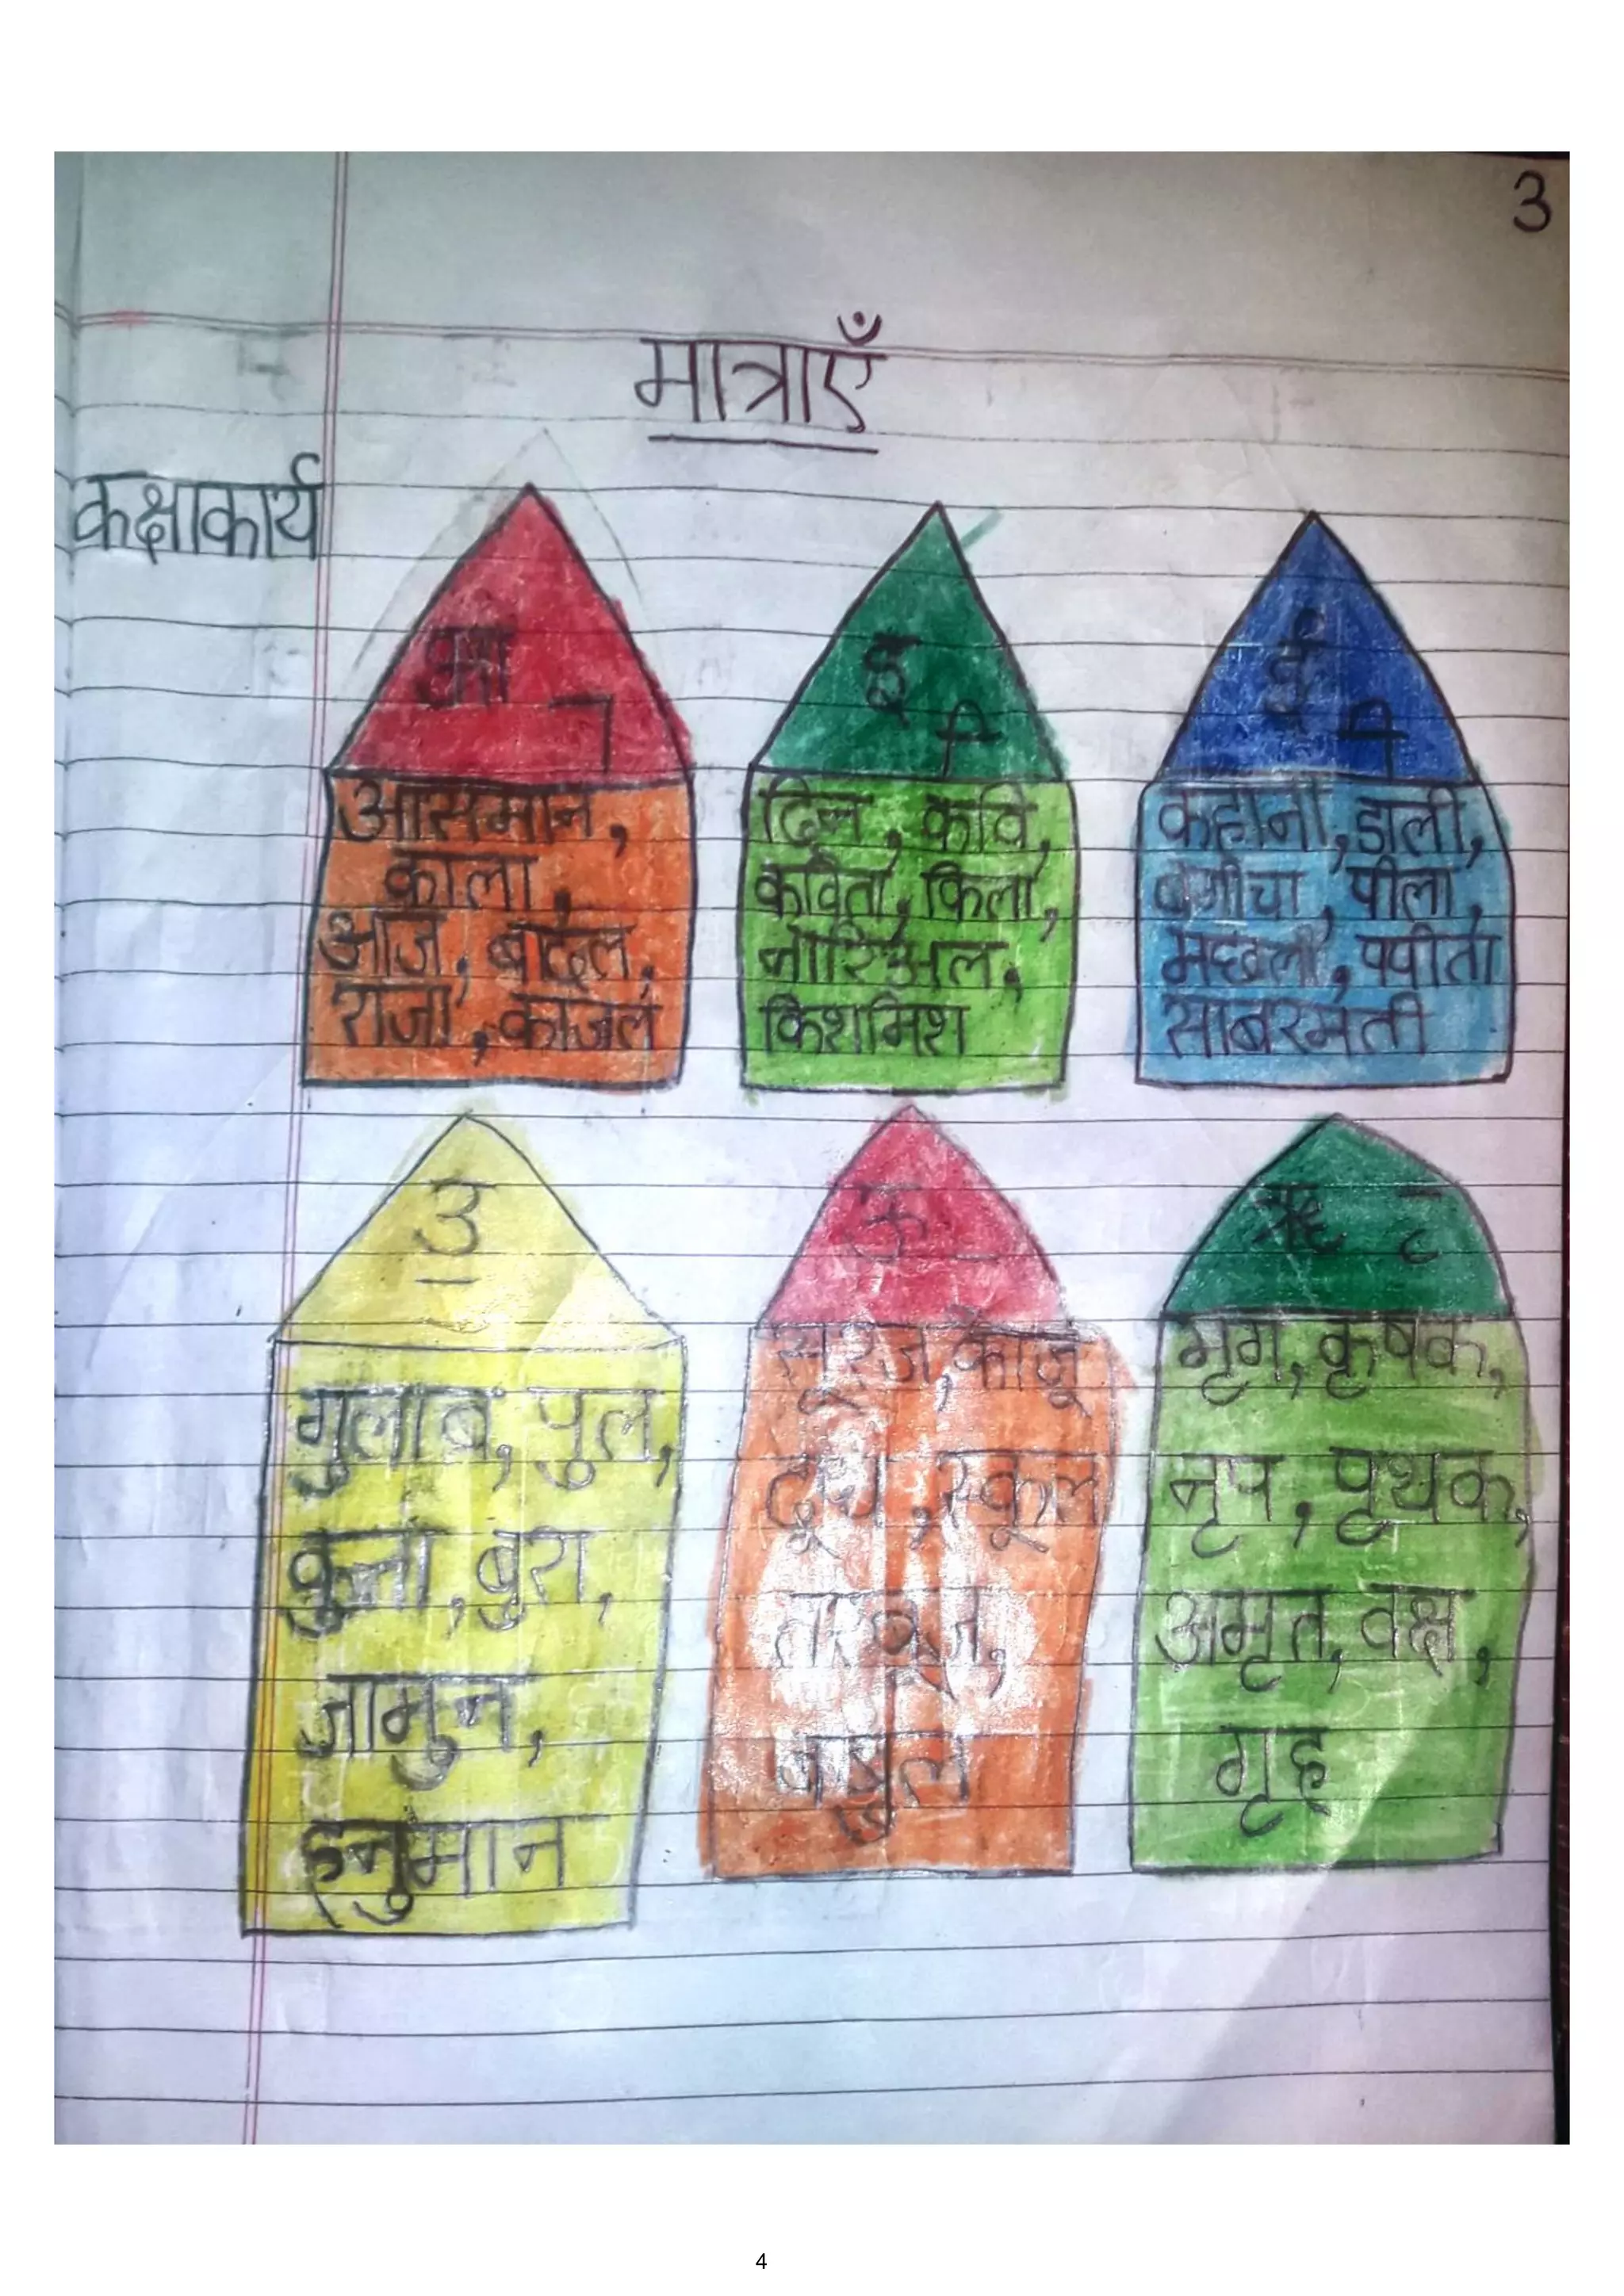 3
मात्राएँ
कक्षाकार्य
आ ा
आसमान,
काला,
आज, बादल,
राजा, काजल
इ ि
दिल, कवि,
कविता, किला,
नारिअल,
किशमिश
ई ी
कहानी, डाली,
बगीचा, पीला,
मछली, पपीता
साबरमती
उ
गुलाब, पुल,
कुत्ता, बुरा,
जामुन,
हनुमान
ऊ
सूरज, काजू
दूध, स्कूल
तरबूज,
ऋ ृ
मृग, कृषक,
नृप, पृथक,
अमृत, वक्ष,
गृह
4